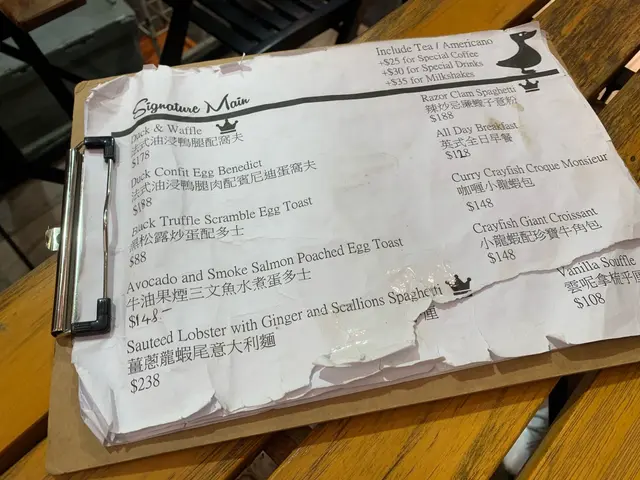 Include Tea / Americano
+$25 for Special Coffee
+$30 for Special Drinks
+$35 for Milkshakes
Signature Main
Duck & Waffle
法式油浸鴨腿配窩夫
$178
Duck Confit Egg Benedict
法式油浸鴨腿肉配賓尼迪蛋窩夫
$188
Black Truffle Scramble Egg Toast
黑松露炒蛋配多士
$88
Avocado and Smoke Salmon Poached Egg Toast
牛油果煙三文魚水煮蛋多士
$148
Sauteed Lobster with Ginger and Scallions Spaghetti
薑蔥龍蝦尾意大利麵
$238
Razor Clam Spaghetti
辣炒忌廉蟶子意粉
$188
All Day Breakfast
英式全日早餐
Curry Crayfish Croque Monsieur
咖喱小龍蝦包
$148
Crayfish Giant Croissant
小龍蝦配珍寶牛角包
$148
Vanilla Souffle
雲呢拿梳乎厘
$108